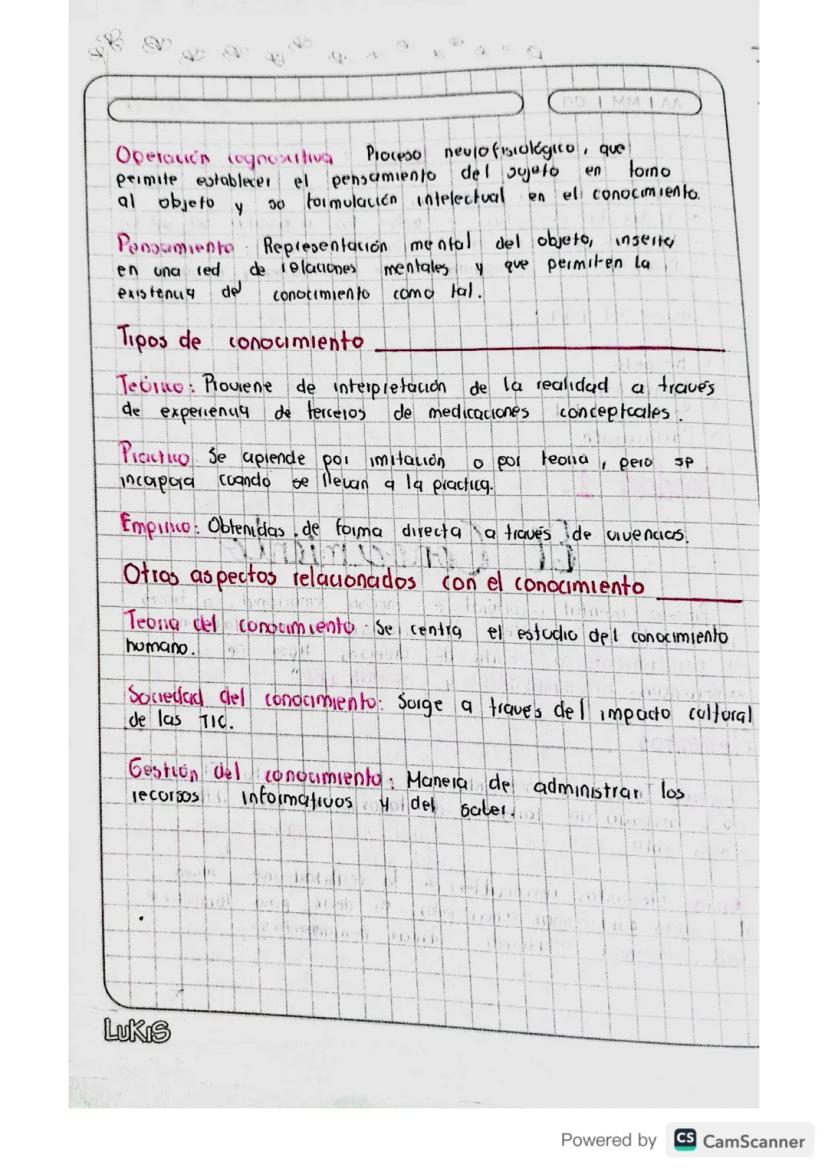 DD | MM | AA
Operación cognoscitiva Proceso neurofisiológico, que
permite establecer el pensamiento del sujeto en torno
al objeto y so formulación intelectual en el conocimiento.
Pensamiento Representación mental del objeto, inserta
en una red de relaciones mentales y que permiten la
existencia del conocimiento como tal.
Tipos de conocimiento
Teórico: Proviene de interpretación de la realidad a través
de experiencia de terceros de medicaciones conceptuales.
Practico Se aprende por imitación o por teoria, pero se
incorpora cuando se llevan a la practica.
Empirico: Obtenidas de forma directa a través de vivencias.
Otros aspectos relacionados con el conocimiento
Teoria del conocimiento Se centra el estudio del conocimiento
humano.
Sociedad del conocimiento: Surge a traves del impacto cultural
de las TIC.
Gestión del conocimiento: Manera de administrar los
recursos informativos y del saber.
LUKIS
Powered by CS CamScanner